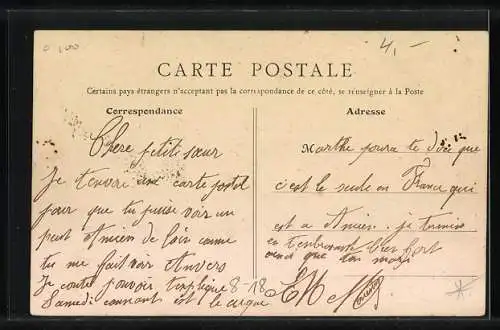 4,-
CARTE POSTALE
Certains pays étrangers n'acceptant pas la correspondance de ce côté, se renseigner à la Poste
Correspondance
Adresse
Chère petite sœur
Je t'envoi une carte postal
pour que tu puise voir un
peut Amien de loin comme
tu me fait voir Anvers
Je conte pouvoir t'expliqué 8-18
Samedi courant est le cirque
Marthe poura te dire que
c'est le seule en France qui
est a Amien. je termine
en t'embrassant bien fort
ainsi que ton mari